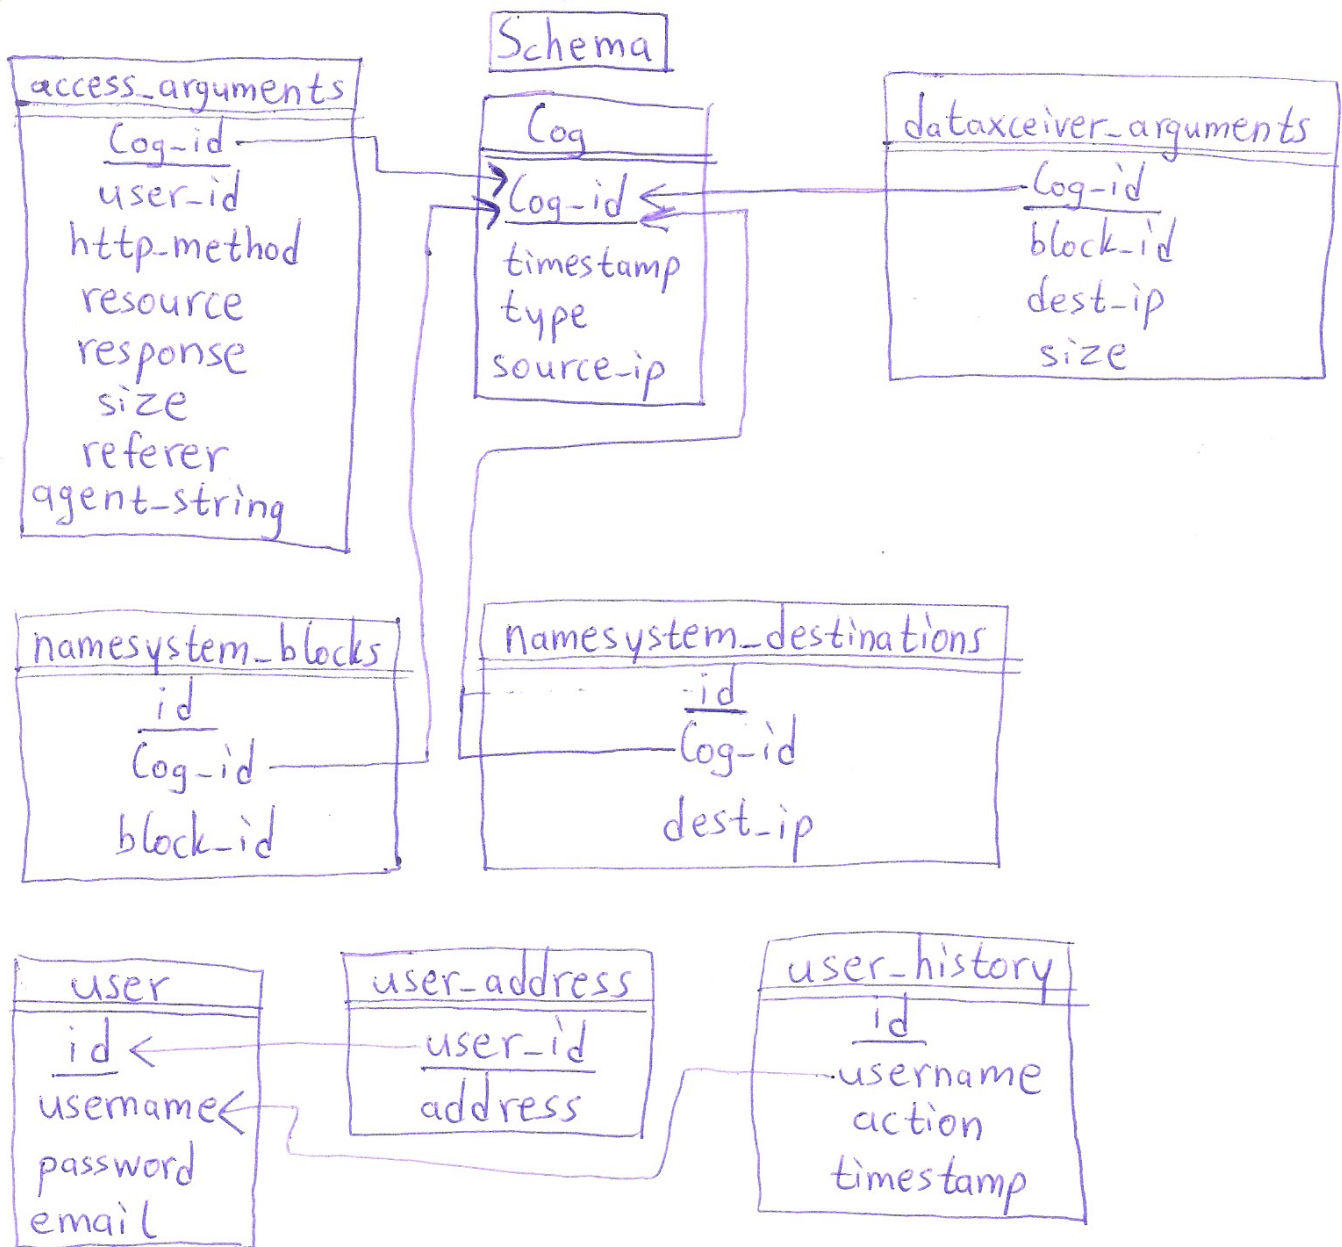 Schema
access_arguments
log_id
user_id
http_method
resource
response
size
referer
agent_string
log
log_id
timestamp
type
source_ip
dataxceiver_arguments
log_id
block_id
dest_ip
size
namesystem_blocks
id
log_id
block_id
namesystem_destinations
id
log_id
dest_ip
user
id
username
password
email
user_address
user_id
address
user_history
id
username
action
timestamp